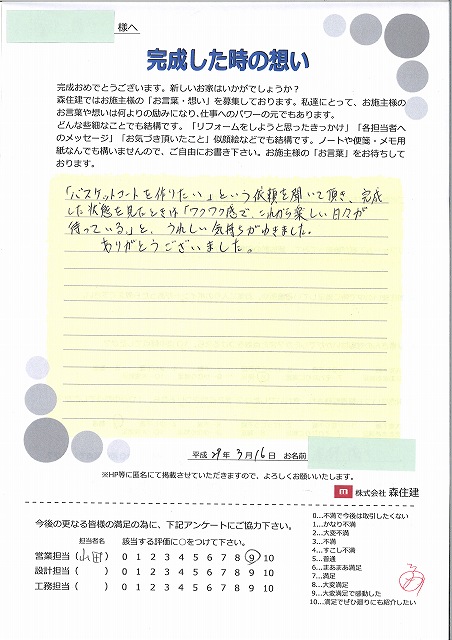 様へ
完成した時の想い
完成おめでとうございます。新しいお家はいかがでしょうか？
森住建ではお施主様の「お言葉・想い」を募集しております。私達にとって、お施主様の
お言葉や想いは何よりの励みになり、仕事へのパワーの元でもあります。
どんな些細なことでも結構です。「リフォームをしようと思ったきっかけ」「各担当者へ
のメッセージ」「お気づき頂いたこと」似顔絵などでも結構です。ノートや便箋・メモ用
紙なんでも構いませんので、ご自由にお書き下さい。お施主様の「お言葉」をお待ちして
おります。
「バスケットコートを作りたい」という依頼を聞いて頂き、完成
した状態を見たときは「ワクワク感で、これから楽しい日々が
待っている。」と、うれしい気持ちがわきました。
ありがとうございました。
平成 29年 3月16日 お名前
※HP等に匿名にて掲載させていただきますので、よろしくお願いいたします。
m 株式会社 森住建
今後の更なる皆様の満足の為に、下記アンケートにご協力下さい。
担当者名 該当する評価に○をつけて下さい。
営業担当 (山田) 0 1 2 3 4 5 6 7 8 9 10
設計担当 ( ) 0 1 2 3 4 5 6 7 8 9 10
工務担当 ( ) 0 1 2 3 4 5 6 7 8 9 10
0…不満で今後は取引したくない
1…かなり不満
2…大変不満
3…不満
4…すこし不満
5…普通
6…まあまあ満足
7…満足
8…大変満足
9…大変満足で感動した
10…満足でぜひ廻りにも紹介したい